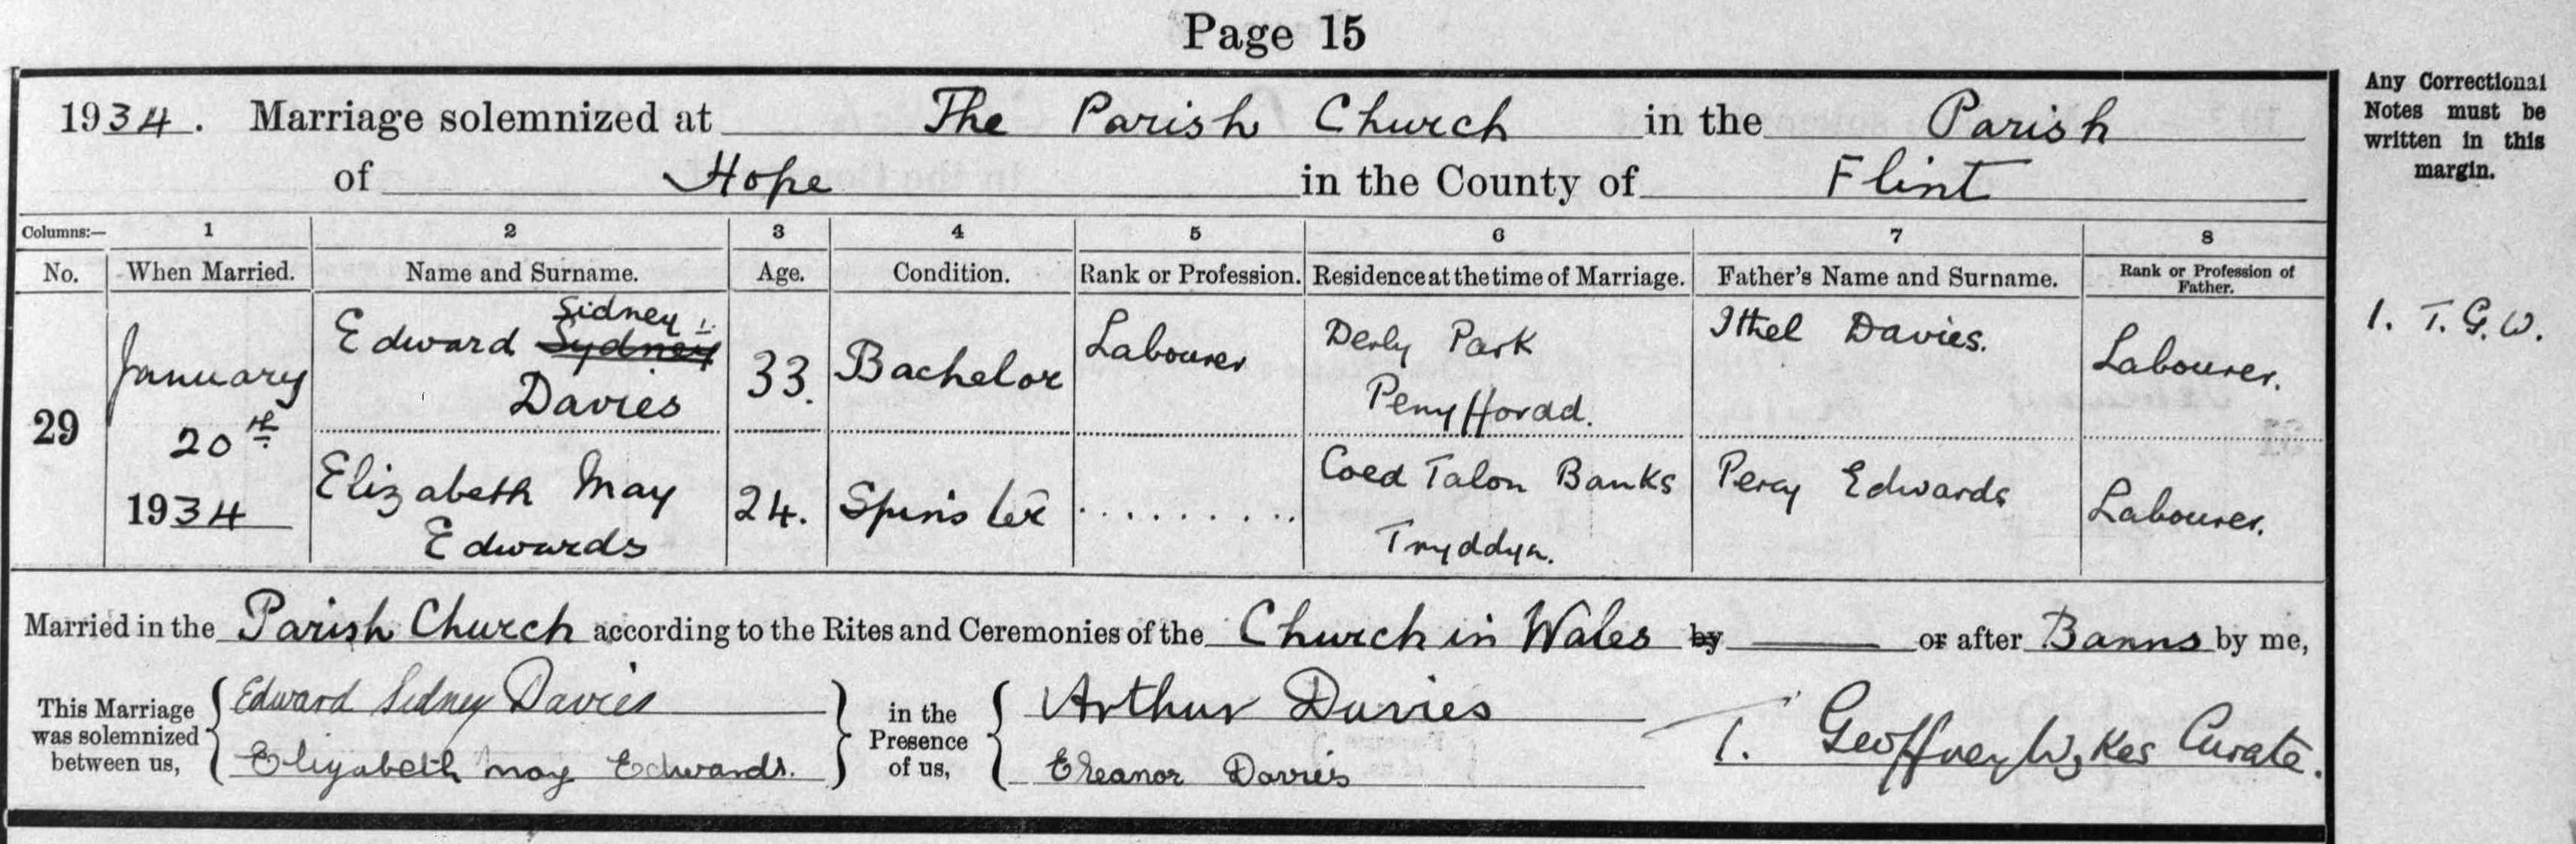 Page 15
Any Correctional
Notes must be
written in this
margin.
1934. Marriage solemnized at The Parish Church in the Parish
of Hope in the County of Flint
Columns:— 1 2 3 4 5 6 7 8
No. When Married. Name and Surname. Age. Condition. Rank or Profession. Residence at the time of Marriage. Father's Name and Surname. Rank or Profession of Father.
29
January
20th
1934
Sidney 1.
Edward Sydney
Davies
33.
Bachelor
Labourer
Derby Park
Penyffordd.
Ithel Davies.
Labourer.
1. T. G. W.
Elizabeth May
Edwards
24.
Spinster
. . . . . . . . .
Coed Talon Banks
Tryddyn.
Percy Edwards
Labourer.
Married in the Parish Church according to the Rites and Ceremonies of the Church in Wales by ——— or after Banns by me,
This Marriage
was solemnized
between us,
Edward Sidney Davies
Elizabeth may Edwards.
in the
Presence
of us,
Arthur Davies
Eleanor Davies
T. Geoffrey Wykes Curate.